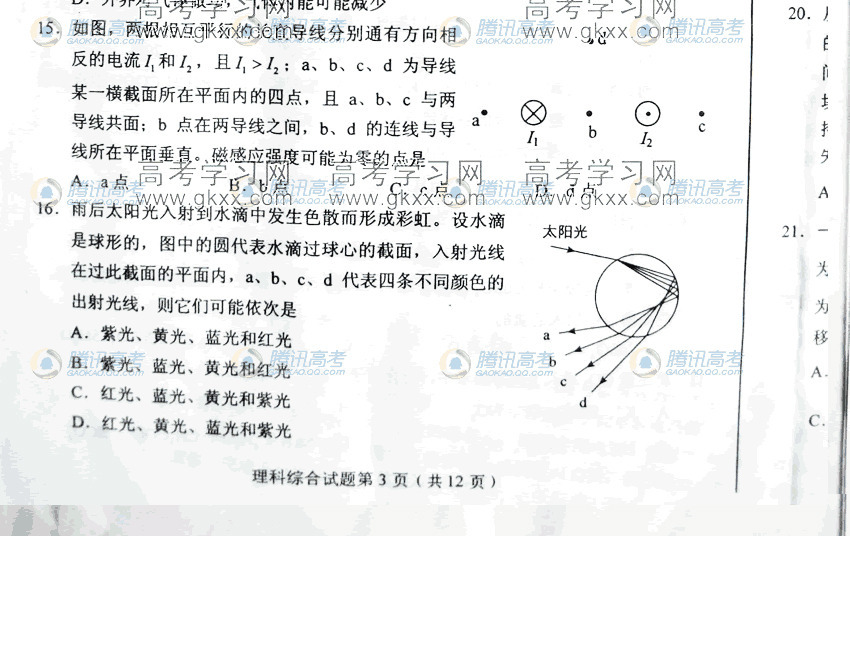 15. 如图，两根相互平行的长直导线分别通有方向相
反的电流I₁和I₂，且I₁>I₂；a、b、c、d 为导线
某一横截面所在平面内的四点，且 a、b、c 与两
导线共面；b 点在两导线之间，b、d 的连线与导
线所在平面垂直。磁感应强度可能为零的点是
A. a点 B. b点 C. c点 D. d点
d
a I₁ b I₂ c
16. 雨后太阳光入射到水滴中发生色散而形成彩虹。设水滴
是球形的，图中的圆代表水滴过球心的截面，入射光线
在过此截面的平面内，a、b、c、d 代表四条不同颜色的
出射光线，则它们可能依次是
A. 紫光、黄光、蓝光和红光
B. 紫光、蓝光、黄光和红光
C. 红光、蓝光、黄光和紫光
D. 红光、黄光、蓝光和紫光
太阳光
a
b
c
d
理科综合试题第 3 页（共 12 页）
20.
21. 一
为
为
移
A.
C.
A
高考学习网 高考学习网 高考学习网
www.gkxx.com www.gkxx.com www.gkxx.com
腾讯高考
GAOKAO.QQ.COM